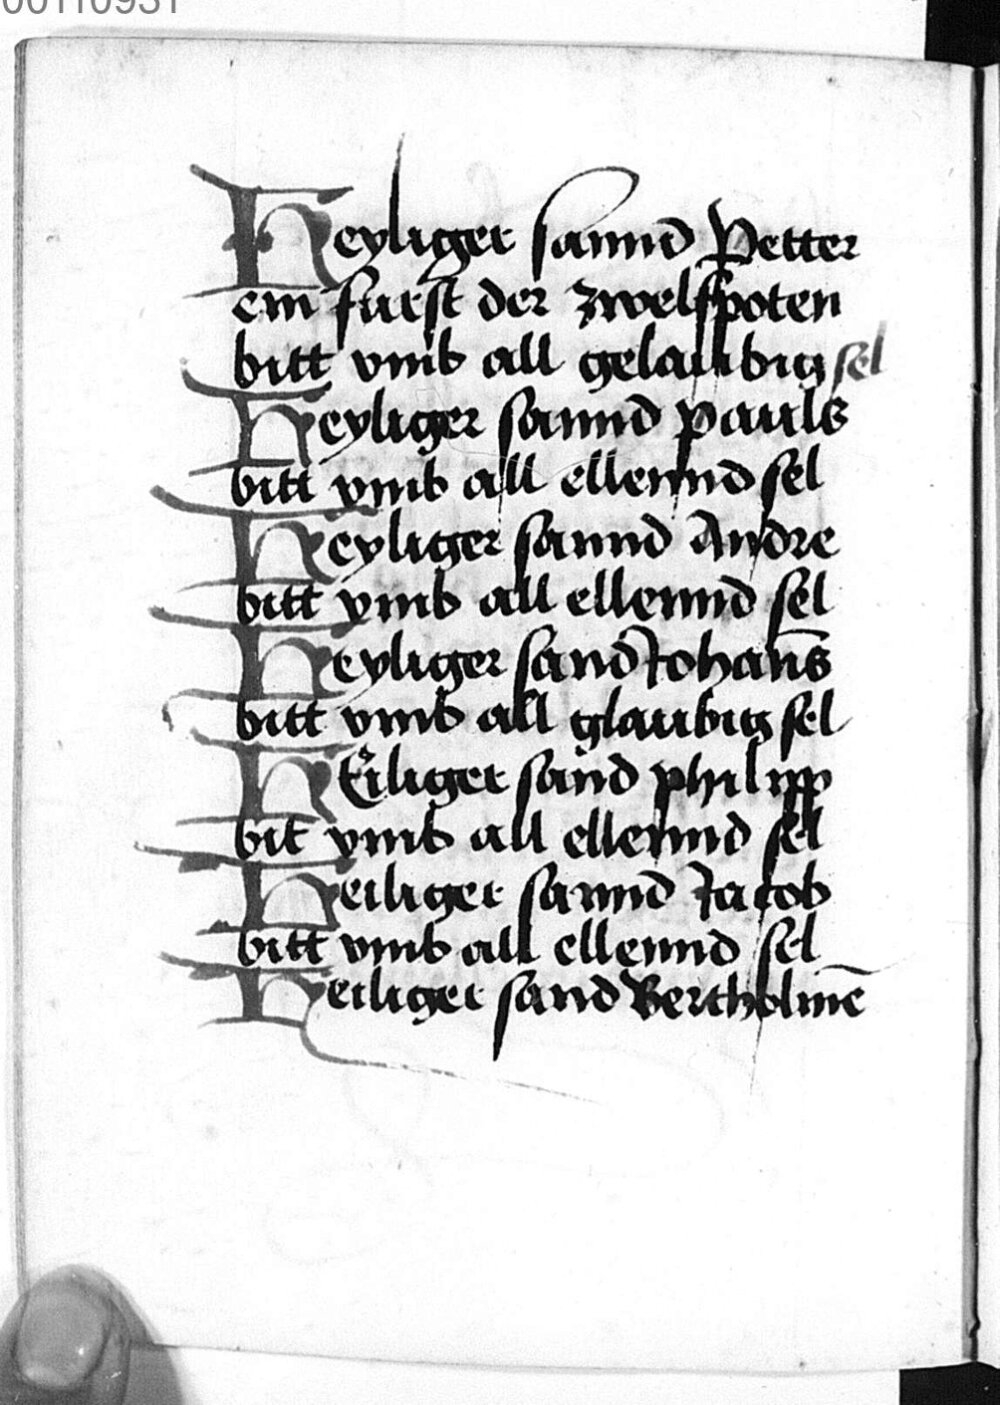 00110931
Heyliger sannd Petter
ein furst der zwelfpoten
bitt vmb all gelaubig sel
Heyliger sannd pauls
bitt vmb all ellennd sel
Heyliger sannd Andre
bitt vmb all ellennd sel
Heyliger sand Johan̄s
bitt vmb all glaubig sel
HEiliger sand philipp
bit vmb all ellennd sel
Heiliger sannd Jacob
bitt vmb all ellennd sel
Heiliger sand Bertholmē